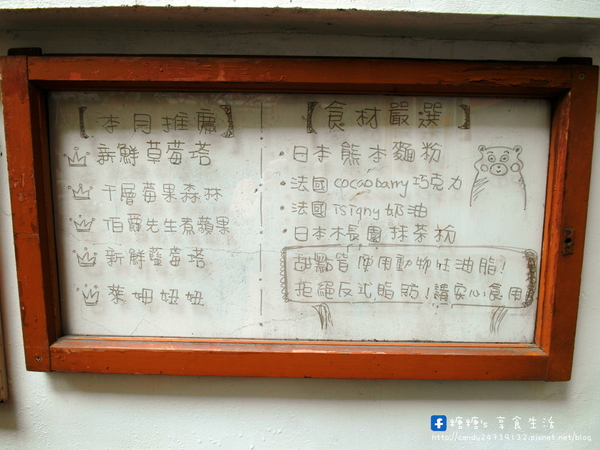 【本月推薦】
新鮮草莓塔
千層莓果森林
伯爵先生煮蘋果
新鮮藍莓塔
萊姆妞妞
【食材嚴選】
・日本熊本麵粉
・法國cacaobarry巧克力
・法國Isigny奶油
・日本木長園抹茶粉
甜點皆使用動物性油脂!
拒絕反式脂肪!請安心食用
糖糖's 享食生活
http://candy24739132.pixnet.net/blog